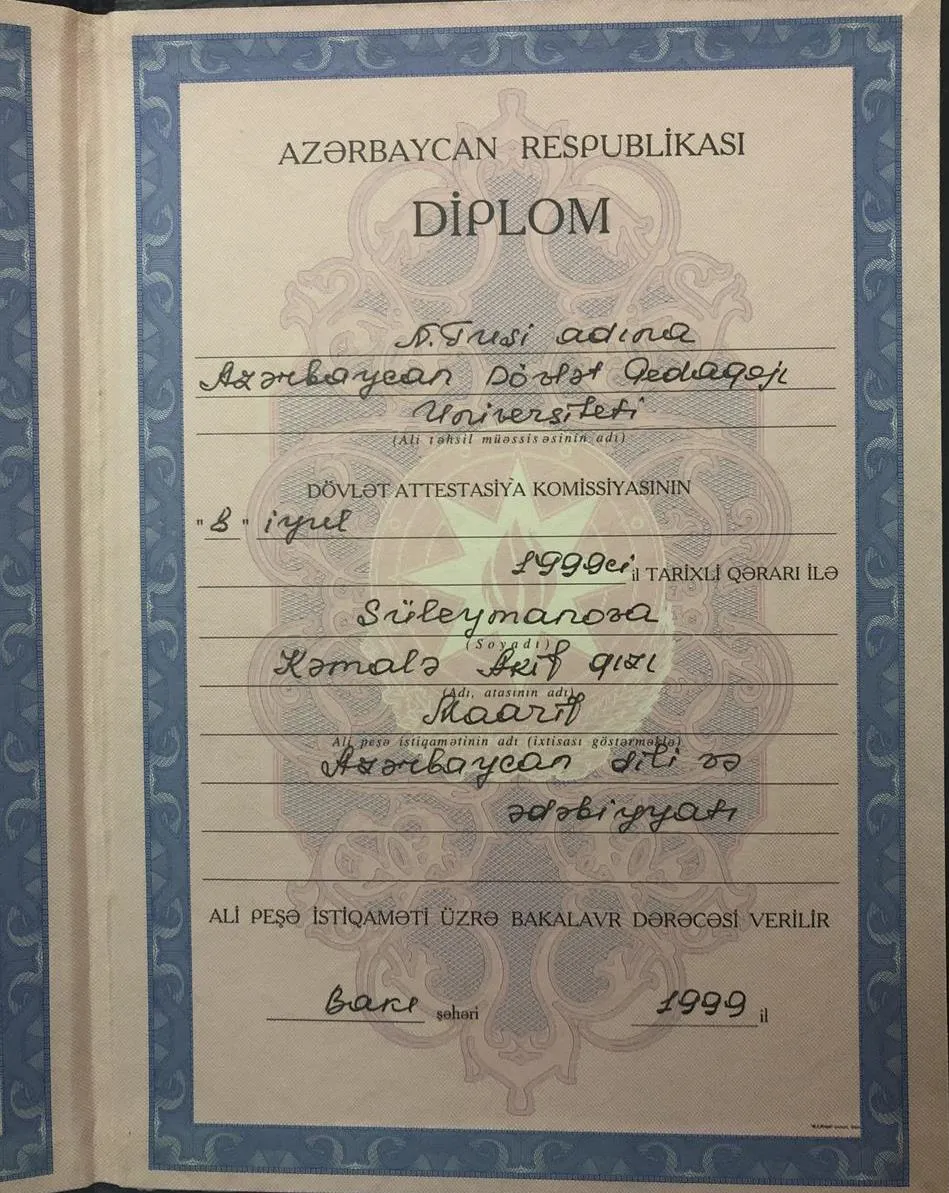 AZƏRBAYCAN RESPUBLİKASI
DİPLOM
N.Tusi adına
Azərbaycan Dövlət Pedaqoji
Universiteti
(Ali təhsil müəssisəsinin adı)
DÖVLƏT ATTESTASİYA KOMİSSİYASININ
" 8 " iyul
1999ci il TARİXLİ QƏRARI İLƏ
Süleymanova
(Soyadı)
Kəmalə Akif qızı
(Adı, atasının adı)
Maarif
Ali peşə istiqamətinin adı (ixtisası göstərməklə)
Azərbaycan dili və
ədəbiyyatı
ALİ PEŞƏ İSTİQAMƏTİ ÜZRƏ BAKALAVR DƏRƏCƏSİ VERİLİR
Bakı şəhəri 1999 il